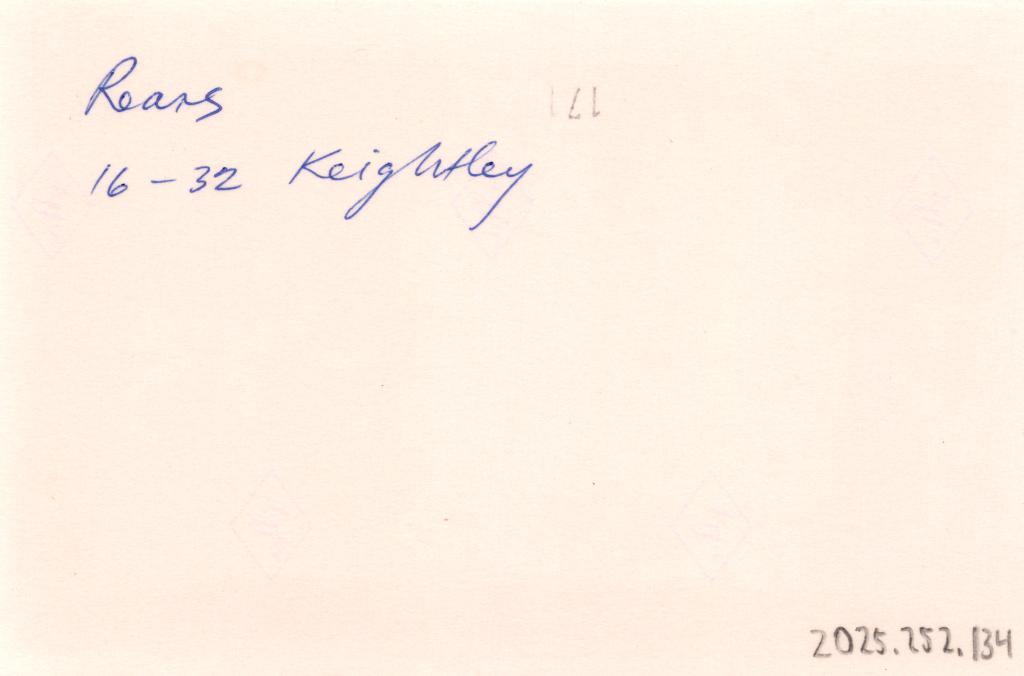 Rears
171
16 - 32 Keightley
2025.252.134